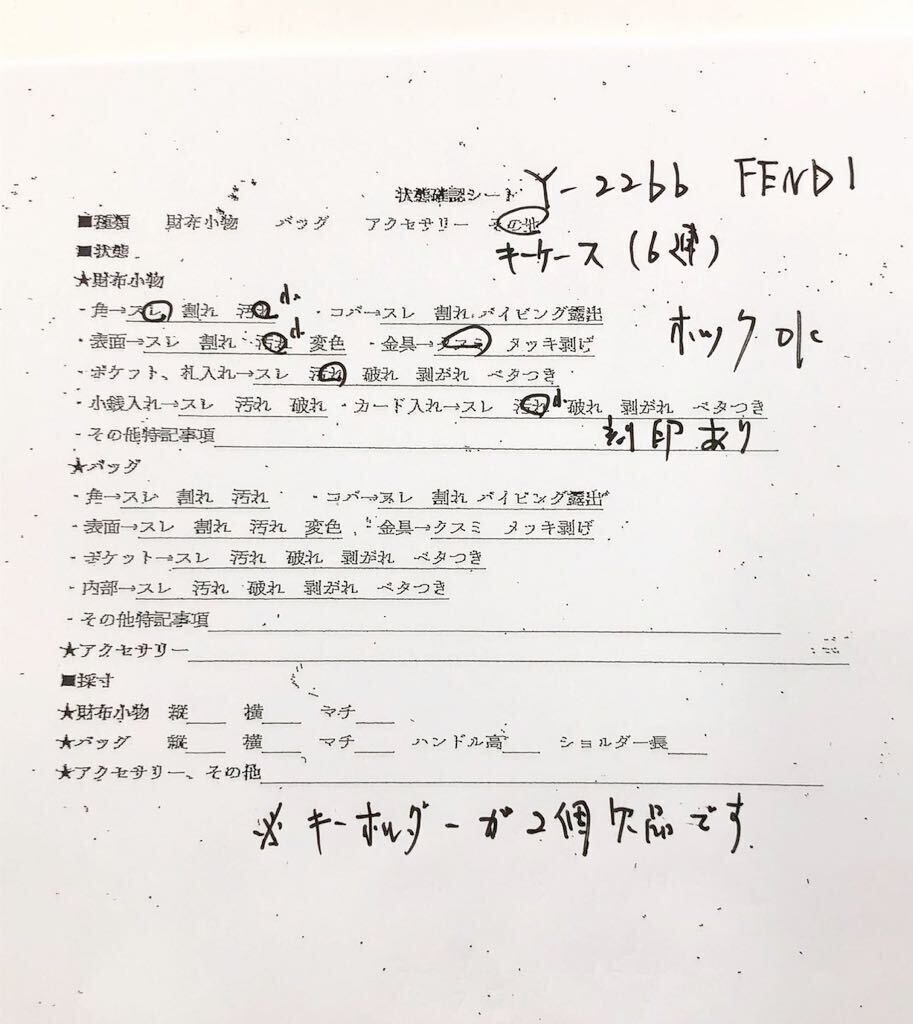 状態確認シート Y-2266 FENDI
■種類 財布小物 バッグ アクセサリー その他
キーケース(6連)
■状態
★財布小物
・角→スレ 割れ 汚れ ・コバ→スレ 割れ パイピング露出
ホック O/C
・表面→スレ 割れ 汚れ 変色 ・金具→クスミ メッキ剥げ
・ポケット、札入れ→スレ 汚れ 破れ 剥がれ ベタつき
・小銭入れ→スレ 汚れ 破れ ・カード入れ→スレ 汚れ 破れ 剥がれ ベタつき
・その他特記事項 刻印あり
★バッグ
・角→スレ 割れ 汚れ ・コバ→スレ 割れ パイピング露出
・表面→スレ 割れ 汚れ 変色 ・金具→クスミ メッキ剥げ
・ポケット→スレ 汚れ 破れ 剥がれ ベタつき
・内部→スレ 汚れ 破れ 剥がれ ベタつき
・その他特記事項
★アクセサリー
■採寸
★財布小物 縦 横 マチ
★バッグ 縦 横 マチ ハンドル高 ショルダー長
★アクセサリー、その他
※キーホルダーが2個欠品です